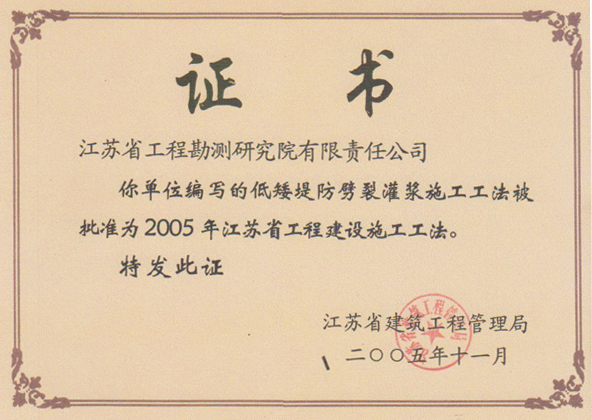 证 书
江苏省工程勘测研究院有限责任公司
你单位编写的低矮堤防劈裂灌浆施工工法被
批准为2005年江苏省工程建设施工工法。
特发此证
江苏省建筑工程管理局
二〇〇五年十一月